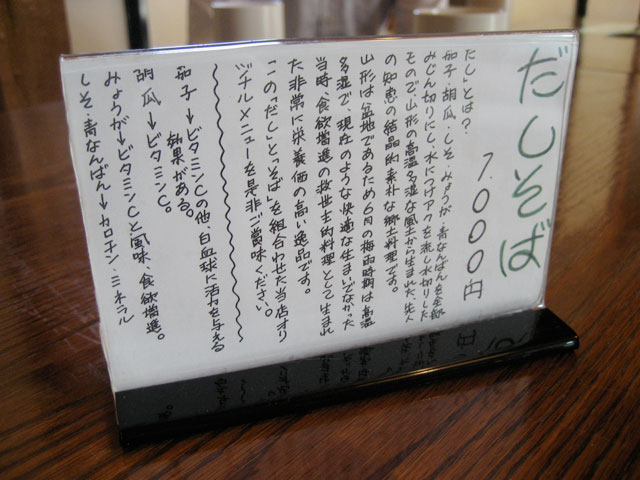 だしそば
1.000円
だしとは?
茄子・胡瓜・しそ・みょうが・青なんばんを全部
みじん切りにし、水につけアクを流し水切りした
もので、山形の高温多湿な風土から生まれた、先人
の知恵の結晶的素朴な郷土料理です。
山形は盆地であるため6月の梅雨時期は高温
多湿で、現在のような快適な住まいでなかった
当時、食欲増進の救世主的料理として生まれ
た非常に栄養価の高い逸品です。
この「だし」と「そば」を組合わせた当店オリ
ジナルメニューを是非ご賞味ください。
茄子→ビタミンCの他、白血球に活力を与える
効果がある。
胡瓜→ビタミンC。
みょうが→ビタミンCと風味、食欲増進。
しそ・青なんばん→カロチン・ミネラル